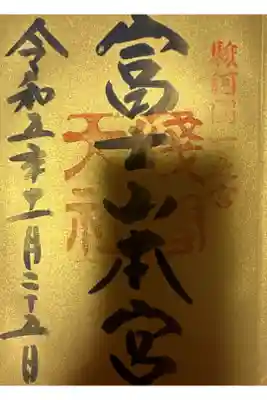 駿河国一之宮
富士山本宮
淺間
大社
令和五年十一月二十五日